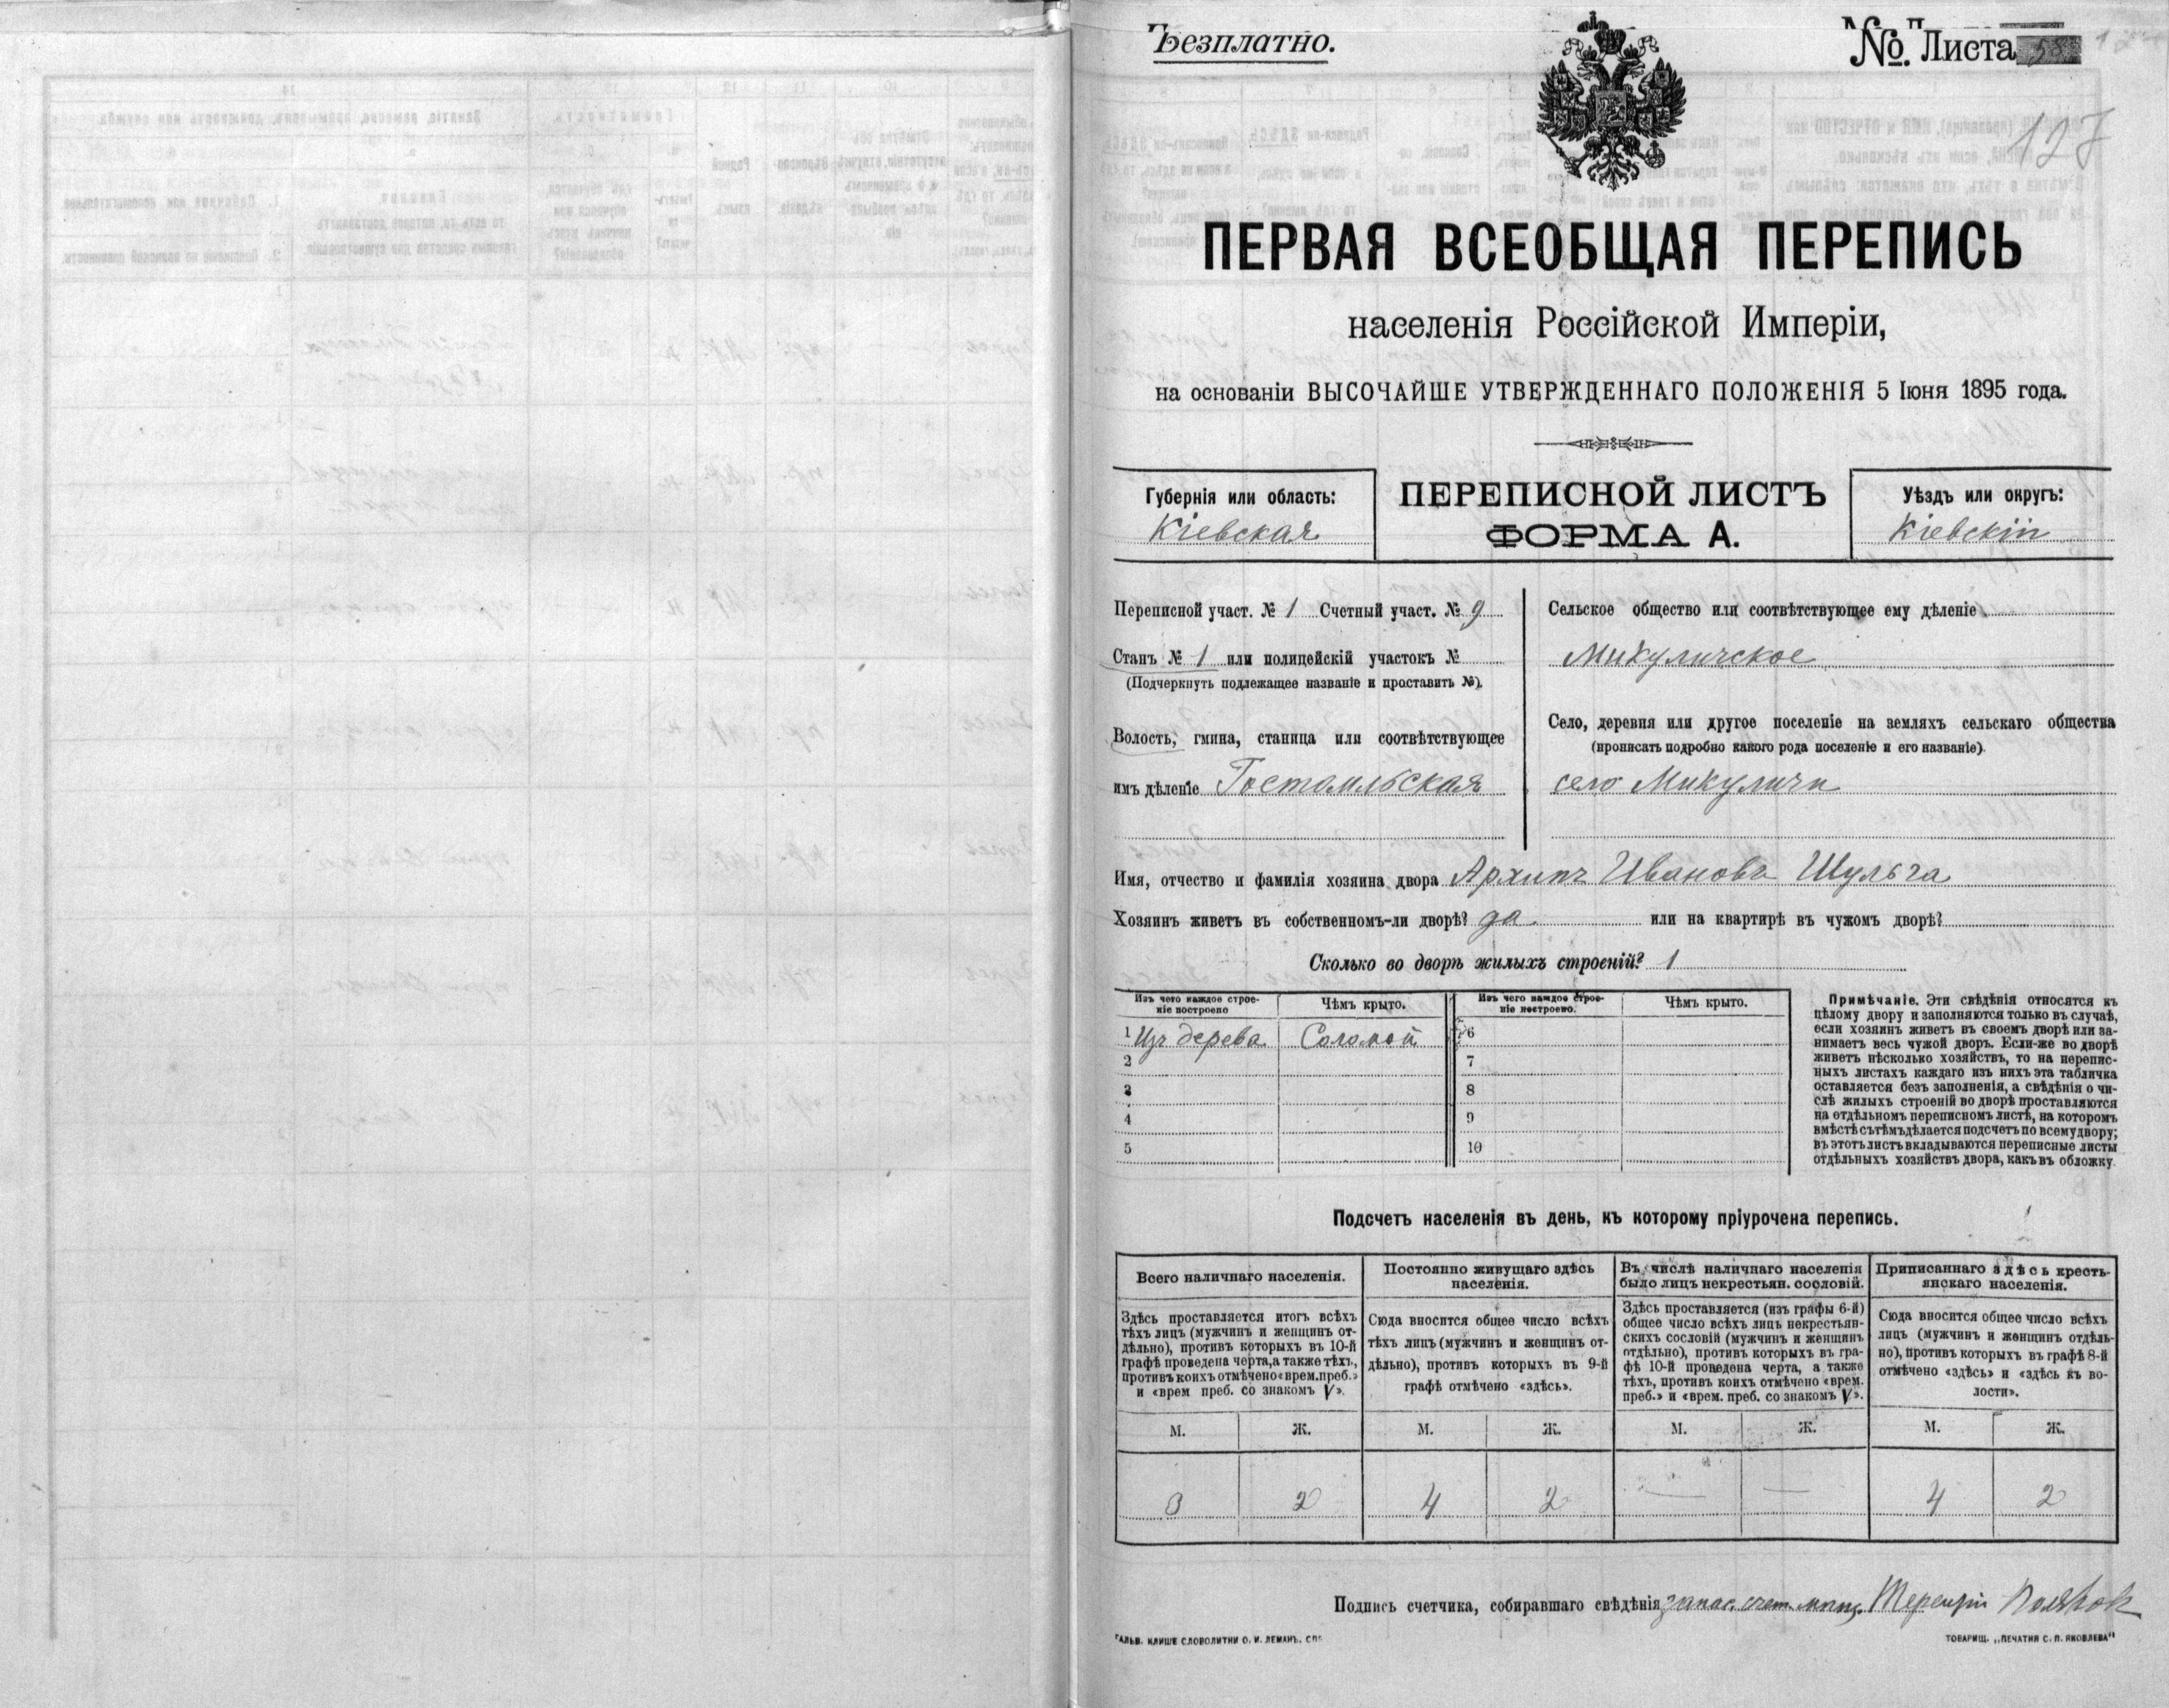 Безплатно.
№. Листа 58
127
ПЕРВАЯ ВСЕОБЩАЯ ПЕРЕПИСЬ
населенія Россійской Имперіи,
на основаніи ВЫСОЧАЙШЕ УТВЕРЖДЕННАГО ПОЛОЖЕНІЯ 5 Іюня 1895 года.
Губернія или область:
Кіевская
ПЕРЕПИСНОЙ ЛИСТЪ
ФОРМА А.
Уѣздъ или округъ:
Кіевскій
Переписной участ. № 1 Счетный участ. № 9
Станъ № 1 или полицейскій участокъ №
(Подчеркнуть подлежащее названіе и проставить №).
Волость, гмина, станица или соотвѣтствующее
имъ дѣленіе Гостомльская
Сельское общество или соотвѣтствующее ему дѣленіе
Микуличское
Село, деревня или другое поселеніе на земляхъ сельскаго общества
(прописать подробно какого рода поселеніе и его названіе).
село Микуличи
Имя, отчество и фамилія хозяина двора Архипъ Ивановъ Шульга
Хозяинъ живетъ въ собственномъ-ли дворѣ? да. или на квартирѣ въ чужомъ дворѣ?
Сколько во дворѣ жилыхъ строеній? 1
Изъ чего каждое строе-
ніе построено
Чѣмъ крыто.
Изъ чего каждое строе-
ніе построено.
Чѣмъ крыто.
1 Изъ дерева Соломой 6
2 7
3 8
4 9
5 10
Примѣчаніе. Эти свѣдѣнія относятся къ
цѣлому двору и заполняются только въ случаѣ,
если хозяинъ живетъ въ своемъ дворѣ или за-
нимаетъ весь чужой дворъ. Если-же во дворѣ
живетъ нѣсколько хозяйствъ, то на перепис-
ныхъ листахъ каждаго изъ нихъ эта табличка
оставляется безъ заполненія, а свѣдѣнія о чи-
слѣ жилыхъ строеній во дворѣ проставляются
на отдѣльномъ переписномъ листѣ, на которомъ
вмѣстѣ съ тѣмъ дѣлается подсчетъ по всему двору;
въ этотъ листъ вкладываются переписные листы
отдѣльныхъ хозяйствъ двора, какъ въ обложку.
Подсчетъ населенія въ день, къ которому пріурочена перепись.
Всего наличнаго населенія.
Здѣсь проставляется итогъ всѣхъ
тѣхъ лицъ (мужчинъ и женщинъ от-
дѣльно), противъ которыхъ въ 10-й
графѣ проведена черта, а также тѣхъ,
противъ коихъ отмѣчено «врем. преб.»
и «врем преб. со знакомъ V».
М. Ж.
3 2
Постоянно живущаго здѣсь
населенія.
Сюда вносится общее число всѣхъ
тѣхъ лицъ (мужчинъ и женщинъ от-
дѣльно), противъ которыхъ въ 9-й
графѣ отмѣчено «здѣсь».
М. Ж.
4 2
Въ числѣ наличнаго населенія
было лицъ некрестьян. сословій.
Здѣсь проставляется (изъ графы 6-й)
общее число всѣхъ лицъ некрестьян-
скихъ сословій (мужчинъ и женщинъ
отдѣльно), противъ которыхъ въ гра-
фѣ 10-й проведена черта, а также
тѣхъ, противъ коихъ отмѣчено «врем.
преб.» и «врем. преб. со знакомъ V».
М. Ж.
— —
Приписаннаго здѣсь кресть-
янскаго населенія.
Сюда вносится общее число всѣхъ
лицъ (мужчинъ и женщинъ отдѣль-
но), противъ которыхъ въ графѣ 8-й
отмѣчено «здѣсь» и «здѣсь къ во-
лости».
М. Ж.
4 2
Подпись счетчика, собиравшаго свѣдѣнія запас. счет. Терентій
ГАЛЬВ. КЛИШЕ СЛОВОЛИТНИ О. И. ЛЕМАНЪ. СПБ
ТОВАРИЩ. „ПЕЧАТНЯ С. П. ЯКОВЛЕВА"